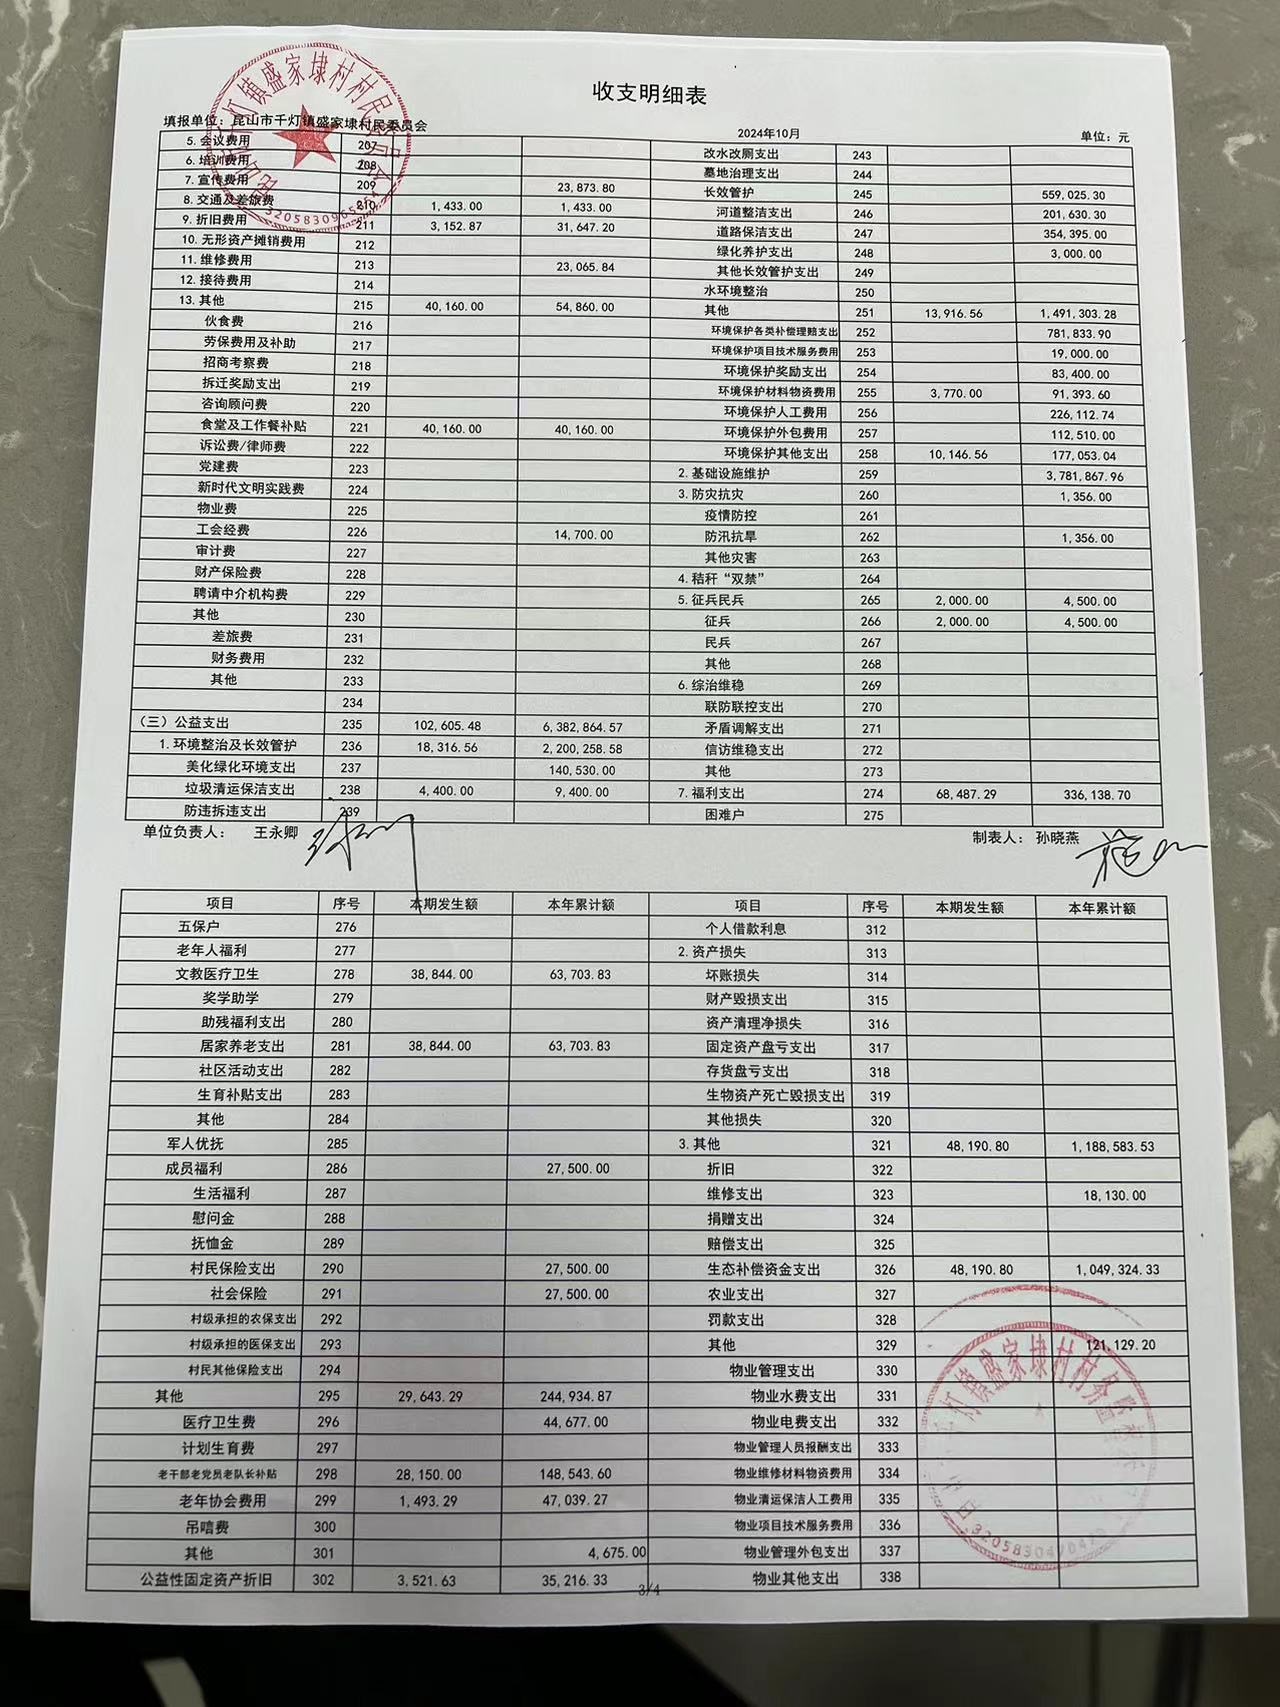 收支明细表
填报单位：昆山市千灯镇盛家埭村民委员会 2024年10月 单位：元
5.会议费用 207
6.培训费用 208
7.宣传费用 209 23,873.80
8.交通及差旅费 210 1,433.00 1,433.00
9.折旧费用 211 3,152.87 31,647.20
10.无形资产摊销费用 212
11.维修费用 213 23,065.84
12.接待费用 214
13.其他 215 40,160.00 54,860.00
伙食费 216
劳保费用及补助 217
招商考察费 218
拆迁奖励支出 219
咨询顾问费 220
食堂及工作餐补贴 221 40,160.00 40,160.00
诉讼费/律师费 222
党建费 223
新时代文明实践费 224
物业费 225
工会经费 226 14,700.00
审计费 227
财产保险费 228
聘请中介机构费 229
其他 230
差旅费 231
财务费用 232
其他 233
234
（三）公益支出 235 102,605.48 6,382,864.57
1.环境整治及长效管护 236 18,316.56 2,200,258.58
美化绿化环境支出 237 140,530.00
垃圾清运保洁支出 238 4,400.00 9,400.00
防违拆违支出 239
改水改厕支出 243
墓地治理支出 244
长效管护 245 559,025.30
河道整洁支出 246 201,630.30
道路保洁支出 247 354,395.00
绿化养护支出 248 3,000.00
其他长效管护支出 249
水环境整治 250
其他 251 13,916.56 1,491,303.28
环境保护各类补偿理赔支出 252 781,833.90
环境保护项目技术服务费用 253 19,000.00
环境保护奖励支出 254 83,400.00
环境保护材料物资费用 255 3,770.00 91,393.60
环境保护人工费用 256 226,112.74
环境保护外包费用 257 112,510.00
环境保护其他支出 258 10,146.56 177,053.04
2.基础设施维护 259 3,781,867.96
3.防灾抗灾 260 1,356.00
疫情防控 261
防汛抗旱 262 1,356.00
其他灾害 263
4.秸秆“双禁” 264
5.征兵民兵 265 2,000.00 4,500.00
征兵 266 2,000.00 4,500.00
民兵 267
其他 268
6.综治维稳 269
联防联控支出 270
矛盾调解支出 271
信访维稳支出 272
其他 273
7.福利支出 274 68,487.29 336,138.70
困难户 275
单位负责人： 王永卿 制表人： 孙晓燕
项目 序号 本期发生额 本年累计额 项目 序号 本期发生额 本年累计额
五保户 276
老年人福利 277
文教医疗卫生 278 38,844.00 63,703.83
奖学助学 279
助残福利支出 280
居家养老支出 281 38,844.00 63,703.83
社区活动支出 282
生育补贴支出 283
其他 284
军人优抚 285
成员福利 286 27,500.00
生活福利 287
慰问金 288
抚恤金 289
村民保险支出 290 27,500.00
社会保险 291 27,500.00
村级承担的农保支出 292
村级承担的医保支出 293
村民其他保险支出 294
其他 295 29,643.29 244,934.87
医疗卫生费 296 44,677.00
计划生育费 297
老干部老党员老队长补贴 298 28,150.00 148,543.60
老年协会费用 299 1,493.29 47,039.27
吊唁费 300
其他 301 4,675.00
公益性固定资产折旧 302 3,521.63 35,216.33
个人借款利息 312
2.资产损失 313
坏账损失 314
财产毁损支出 315
资产清理净损失 316
固定资产盘亏支出 317
存货盘亏支出 318
生物资产死亡毁损支出 319
其他损失 320
3.其他 321 48,190.80 1,188,583.53
折旧 322
维修支出 323 18,130.00
捐赠支出 324
赔偿支出 325
生态补偿资金支出 326 48,190.80 1,049,324.33
农业支出 327
罚款支出 328
其他 329 121,129.20
物业管理支出 330
物业水费支出 331
物业电费支出 332
物业管理人员报酬支出 333
物业维修材料物资费用 334
物业清运保洁人工费用 335
物业项目技术服务费用 336
物业管理外包支出 337
物业其他支出 338
3/4